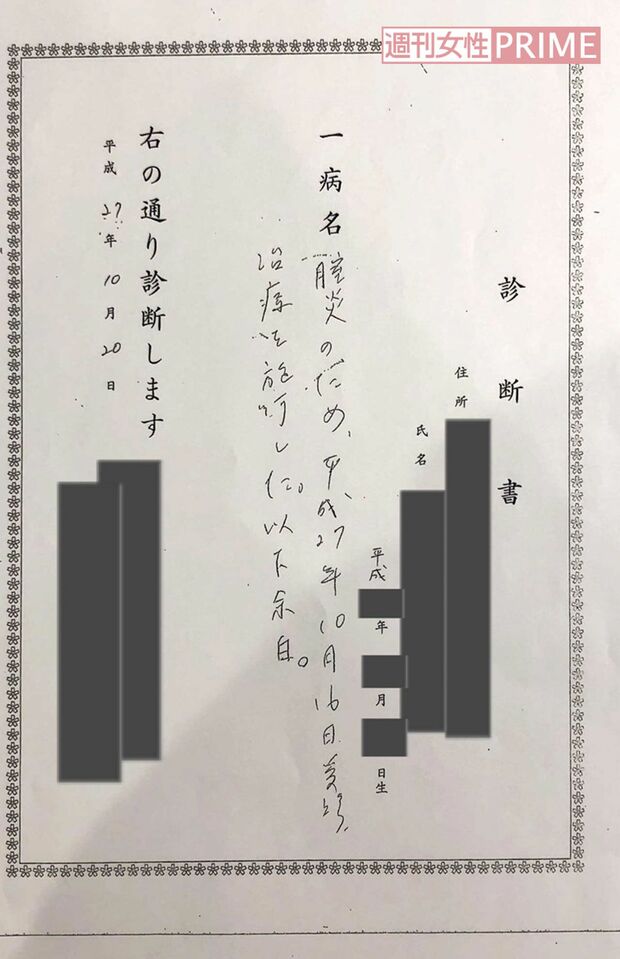 週刊女性PRIME
診断書
住所
氏名
平成 年 月 日生
一病名 膣炎のため、平成27年10月16日受診、
治療を施行した。以下余白。
右の通り診断します
平成27年10月20日